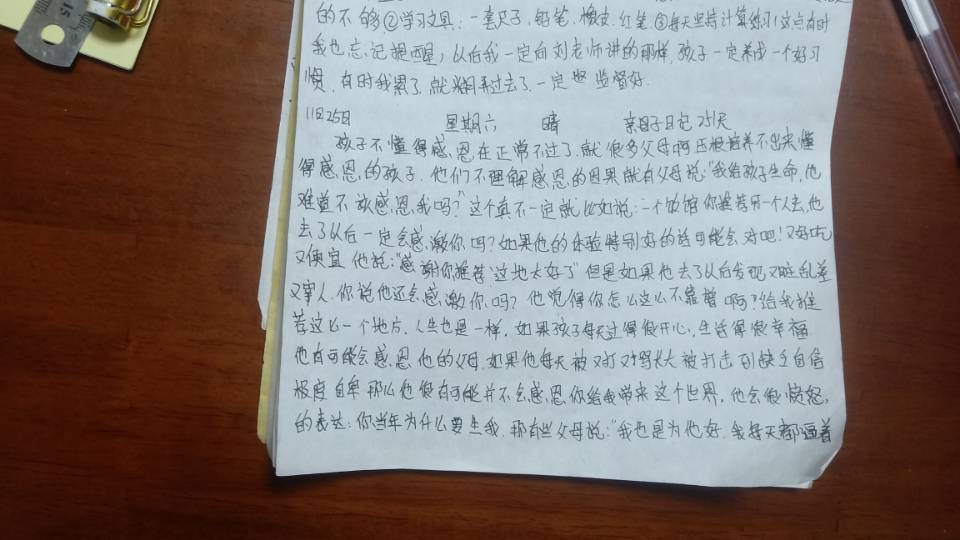 的不够②学习文具:一套尺子,铅笔,橡皮,红笔③每天坚持计算练习这点有时
我也忘记提醒,从后我一定向刘老师讲的那样,孩子一定养成一个好习
惯,有时我累了就糊弄过去了,一定要监督好.
11日25日 星期六 晴 亲日子日记251天
孩子不懂得感恩在正常不过了就很多父母啊压根培养不出来懂
得感恩的孩子.他们不理解感恩的因果就有父母说:"我给孩子生命,他
难道不该感恩我吗?"这个真不一定就比如说:一个饭馆你推荐另一个人去,他
去了以后一定会感激你吗?如果他的体验特别好的话可能会对吧!又好吃
又便宜他说:"感谢你推荐这地太好了"但是如果他去了以后发现又脏乱差
又宰人.你说他还会感激你吗?他觉得你怎么这么不靠谱啊?给我推
荐这么一个地方.人生也是一样,如果孩子每天过得很开心,生活得很幸福
他有可能会感恩他的父母.如果他每天被又打又骂长大被打击到缺乏自信
极度自卑那么他很有可能并不会感恩你给我带来这个世界,他会很愤怒,
的表达:你当年为什么要生我.那有些父母说:"我也是为他好.我每天都逼着
15